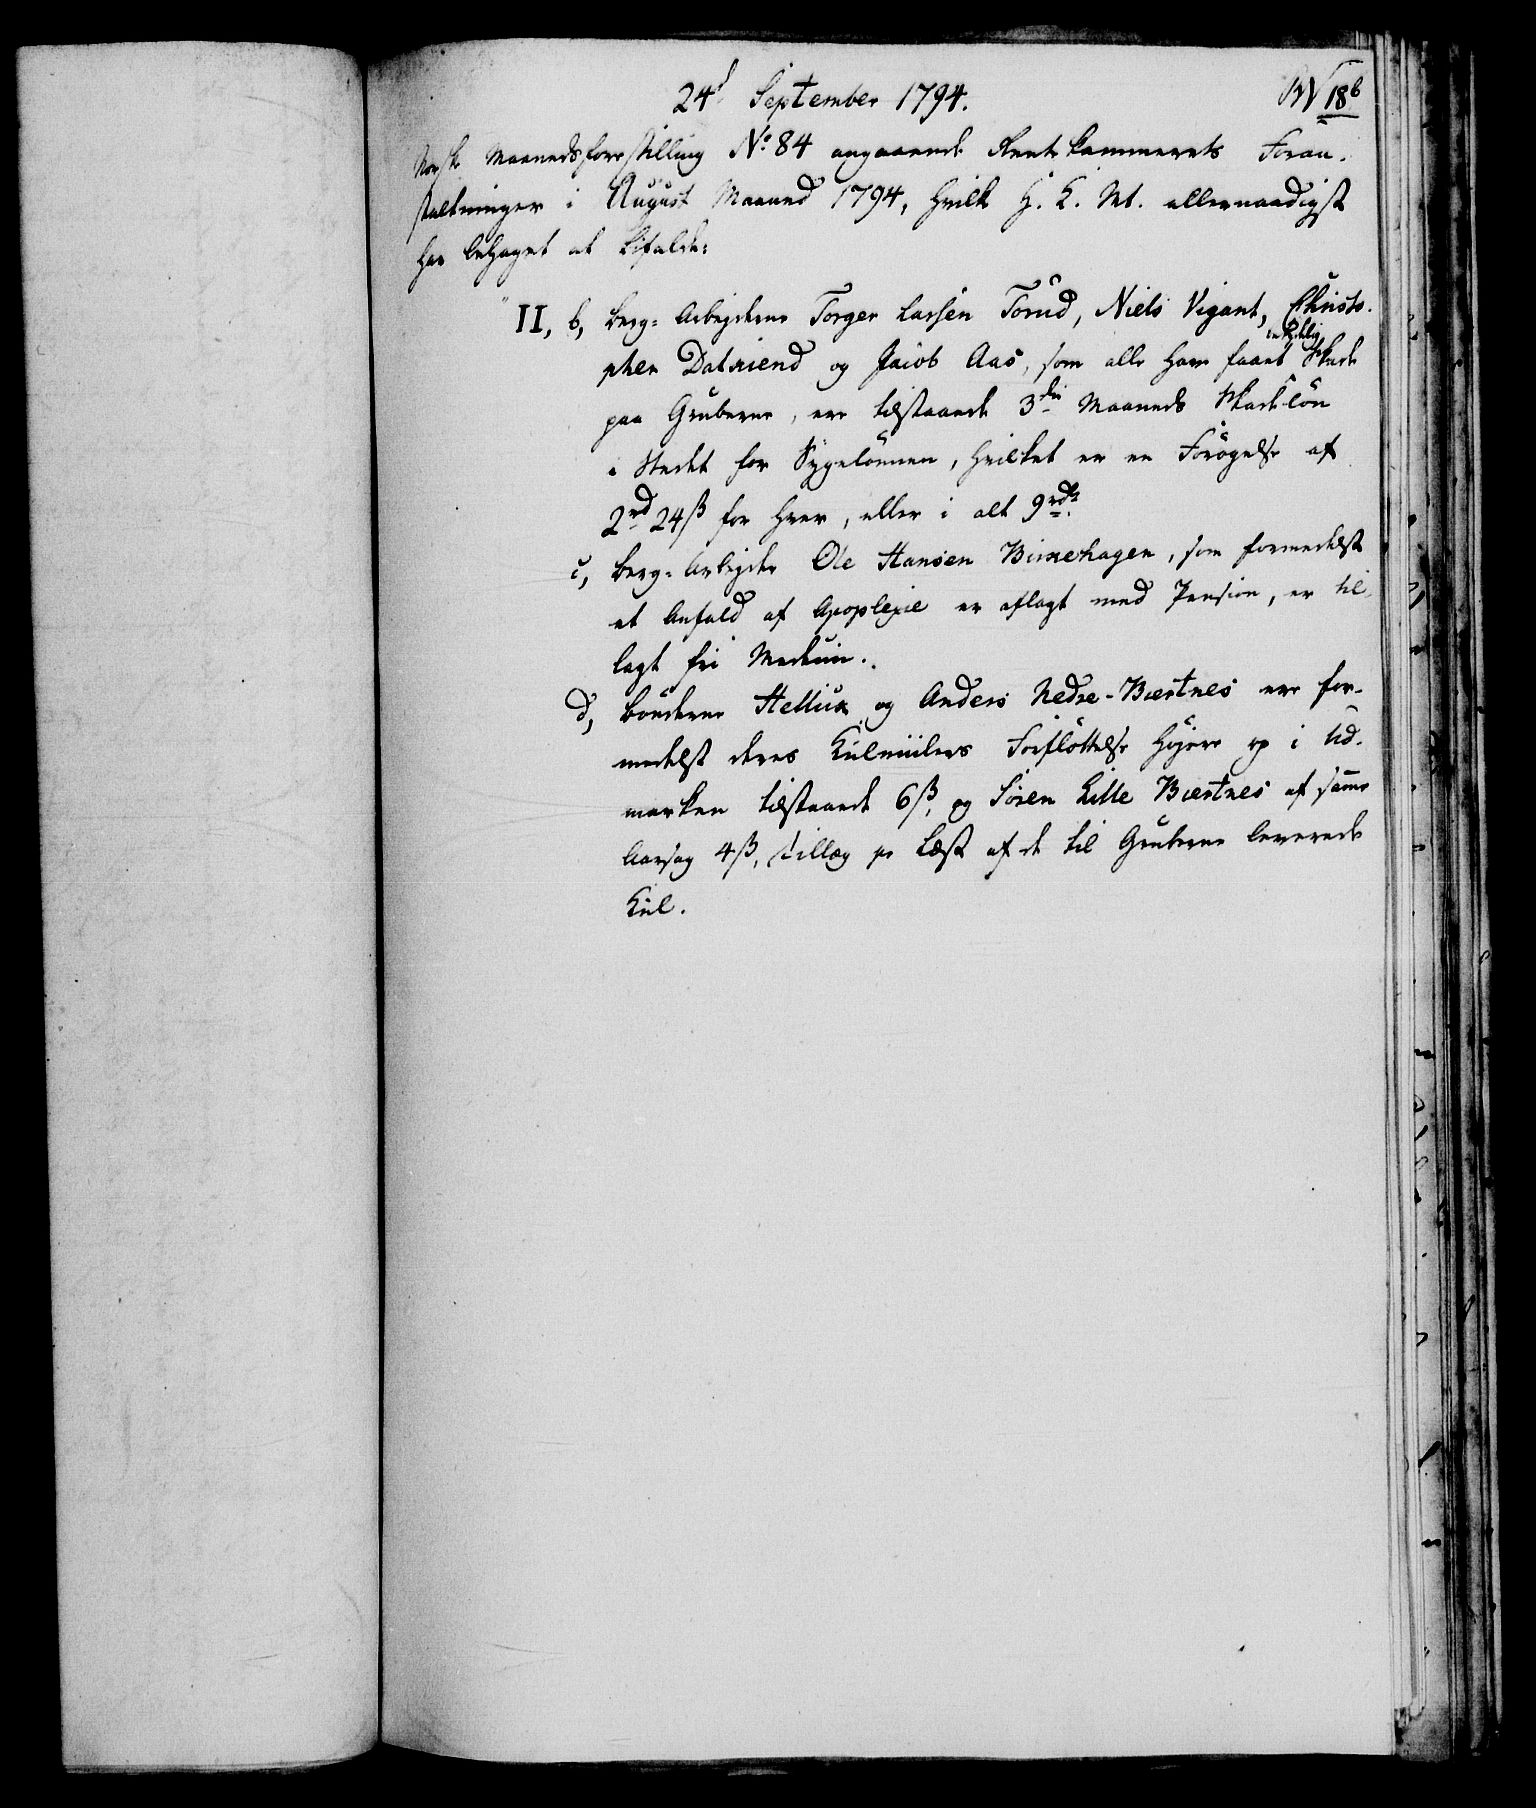 24d September 1794.
18b
Norsk Maanedsforestilling No. 84 angaaende Rentekammerets Foran-
staltninger i August Maaned 1794, hvilke H. K. Mt. allernaadigst
har behaget at bifalde:
II, b, Berg-Arbejderne Torger Larsen Torud, Niels Vigant, Christo-
pher Datriend og Jacob Aas, som alle have faaet Skade
paa Gruberne, ere tilstaaede 3de Maaneds Skadelön
i Stedet for Sygelönnen, hvilket er en Forögelse af
2rd 24ß for hver, eller i alt 9rdr.
c, Berg-Arbejder Ole Hansen Birkehagen, som formedelst
et Anfald af Apoplexie er aflagt med Pension, er til-
lagt fri Medicin.
d, Bönderne Hellick og Anders Nedre-Bærtnes ere for-
medelst deres Kulmiilers Forflöttelse höjere op i Ud-
marken tilstaaede 6ß, og Sören Lille Bærtnes af samme
Aarsag 4ß, Tillæg pr Læst af de til Gruberne leverede
Kul.